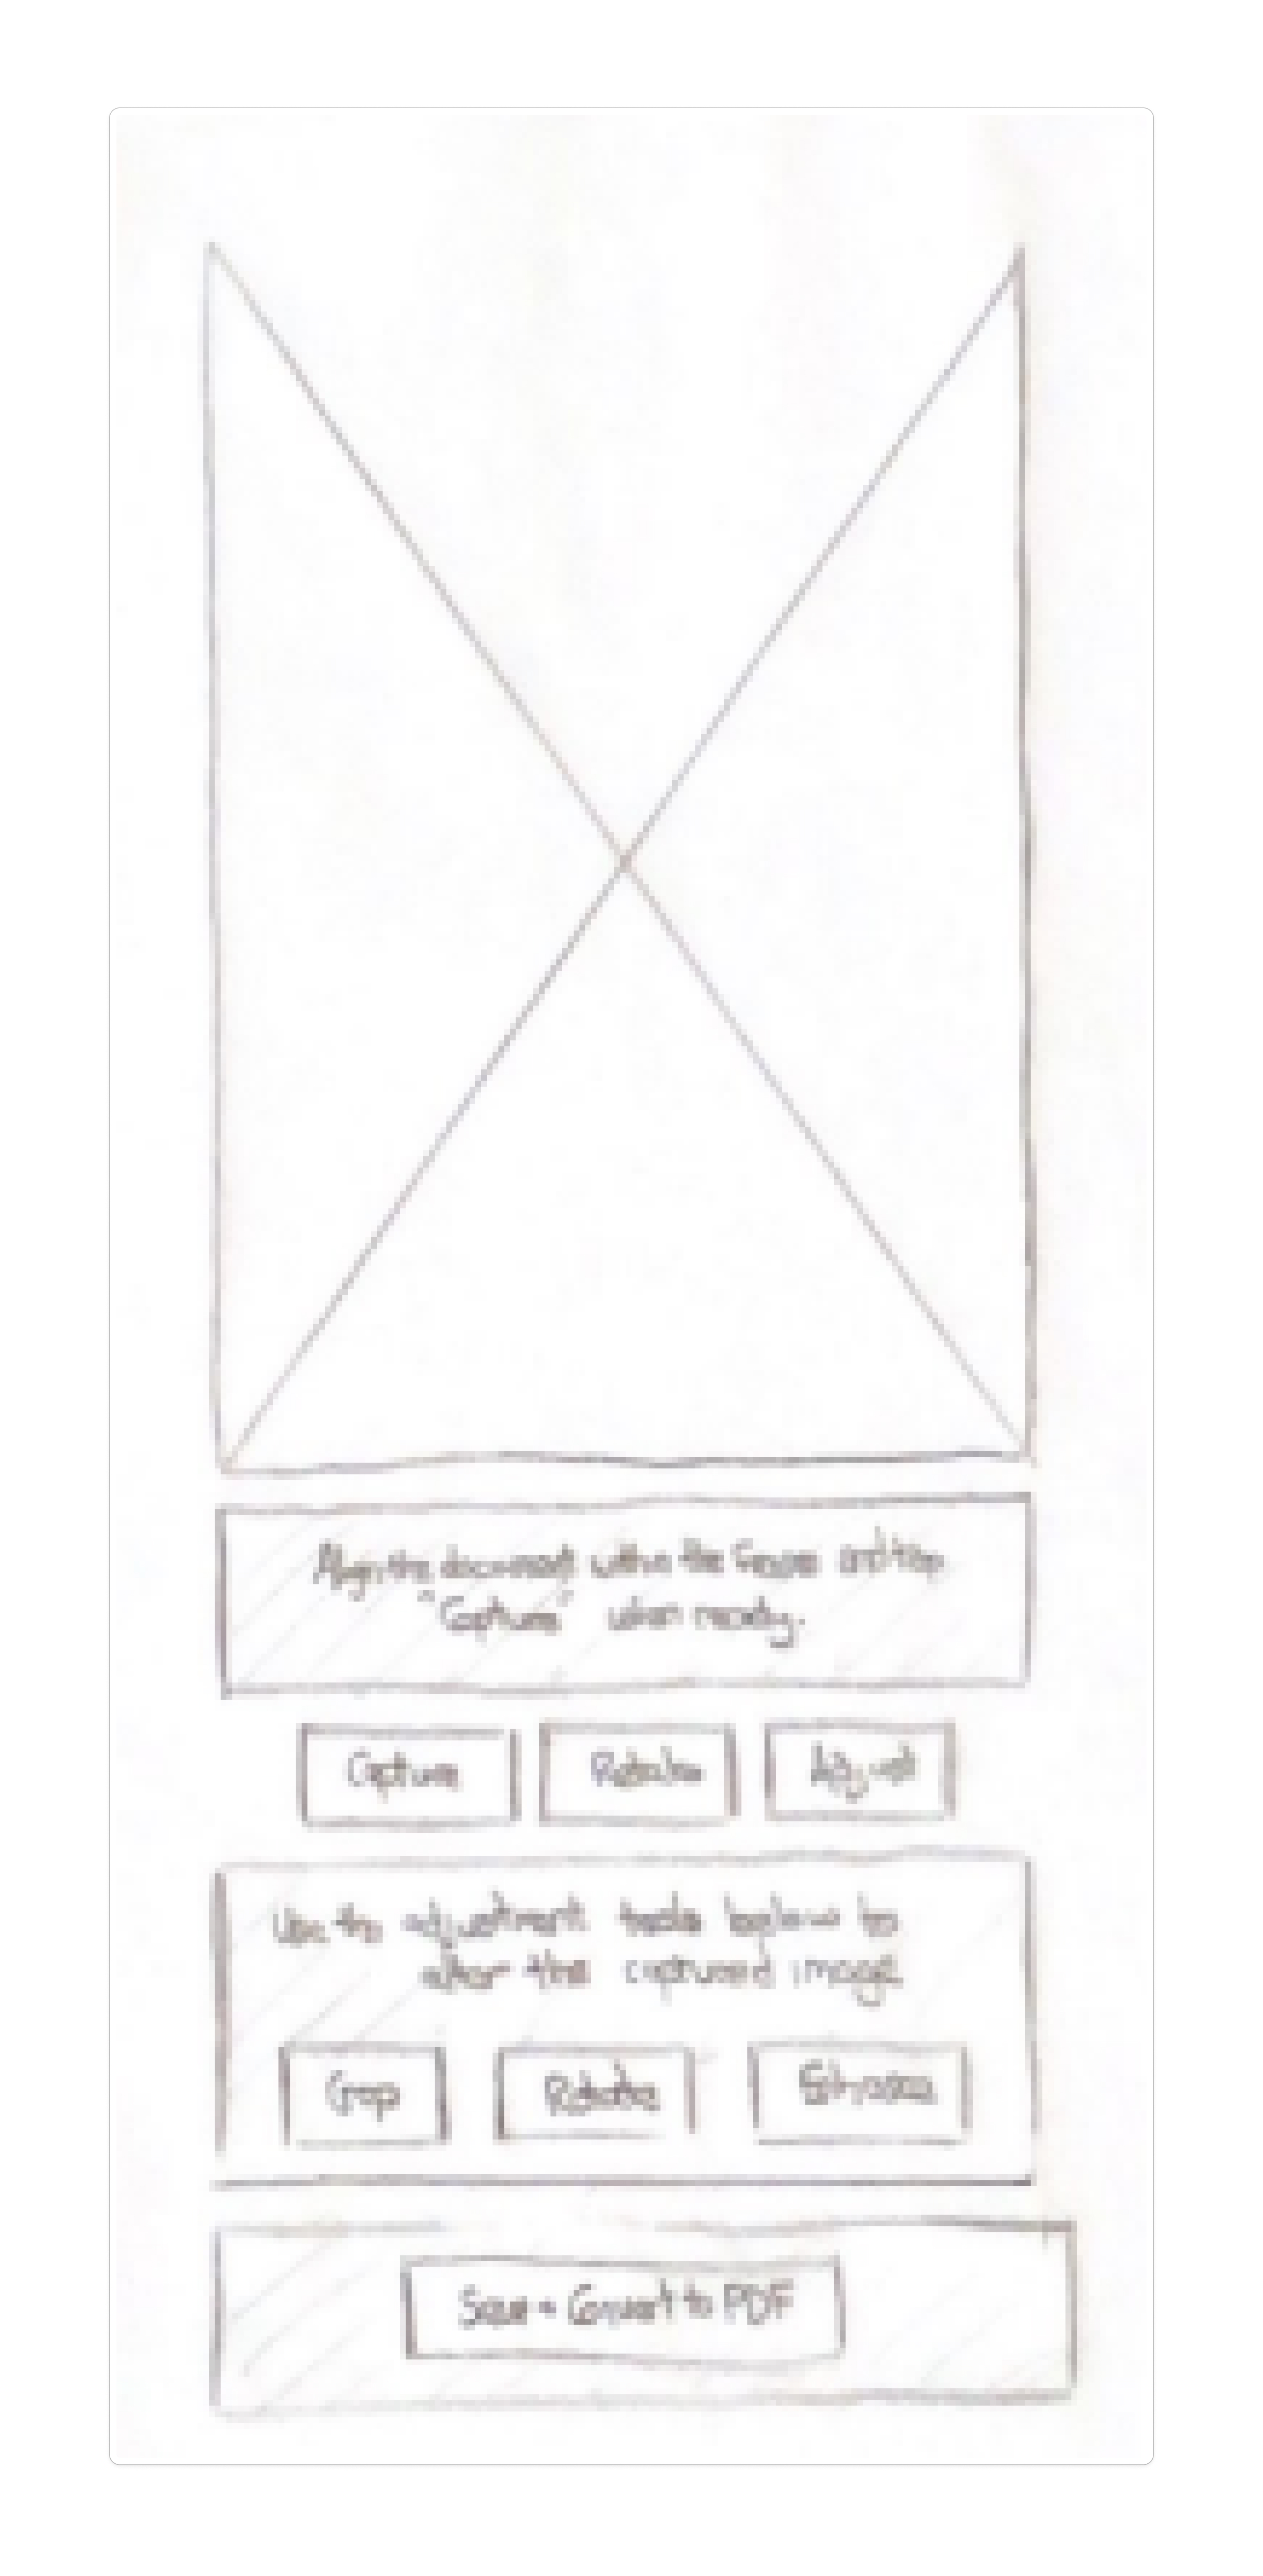 Align the document within the frame and tap
"Capture" when ready.
Capture
Adjust
Use the adjustment tools below to
alter the captured image
Crop
Rotate
Enhance
Save + Convert to PDF